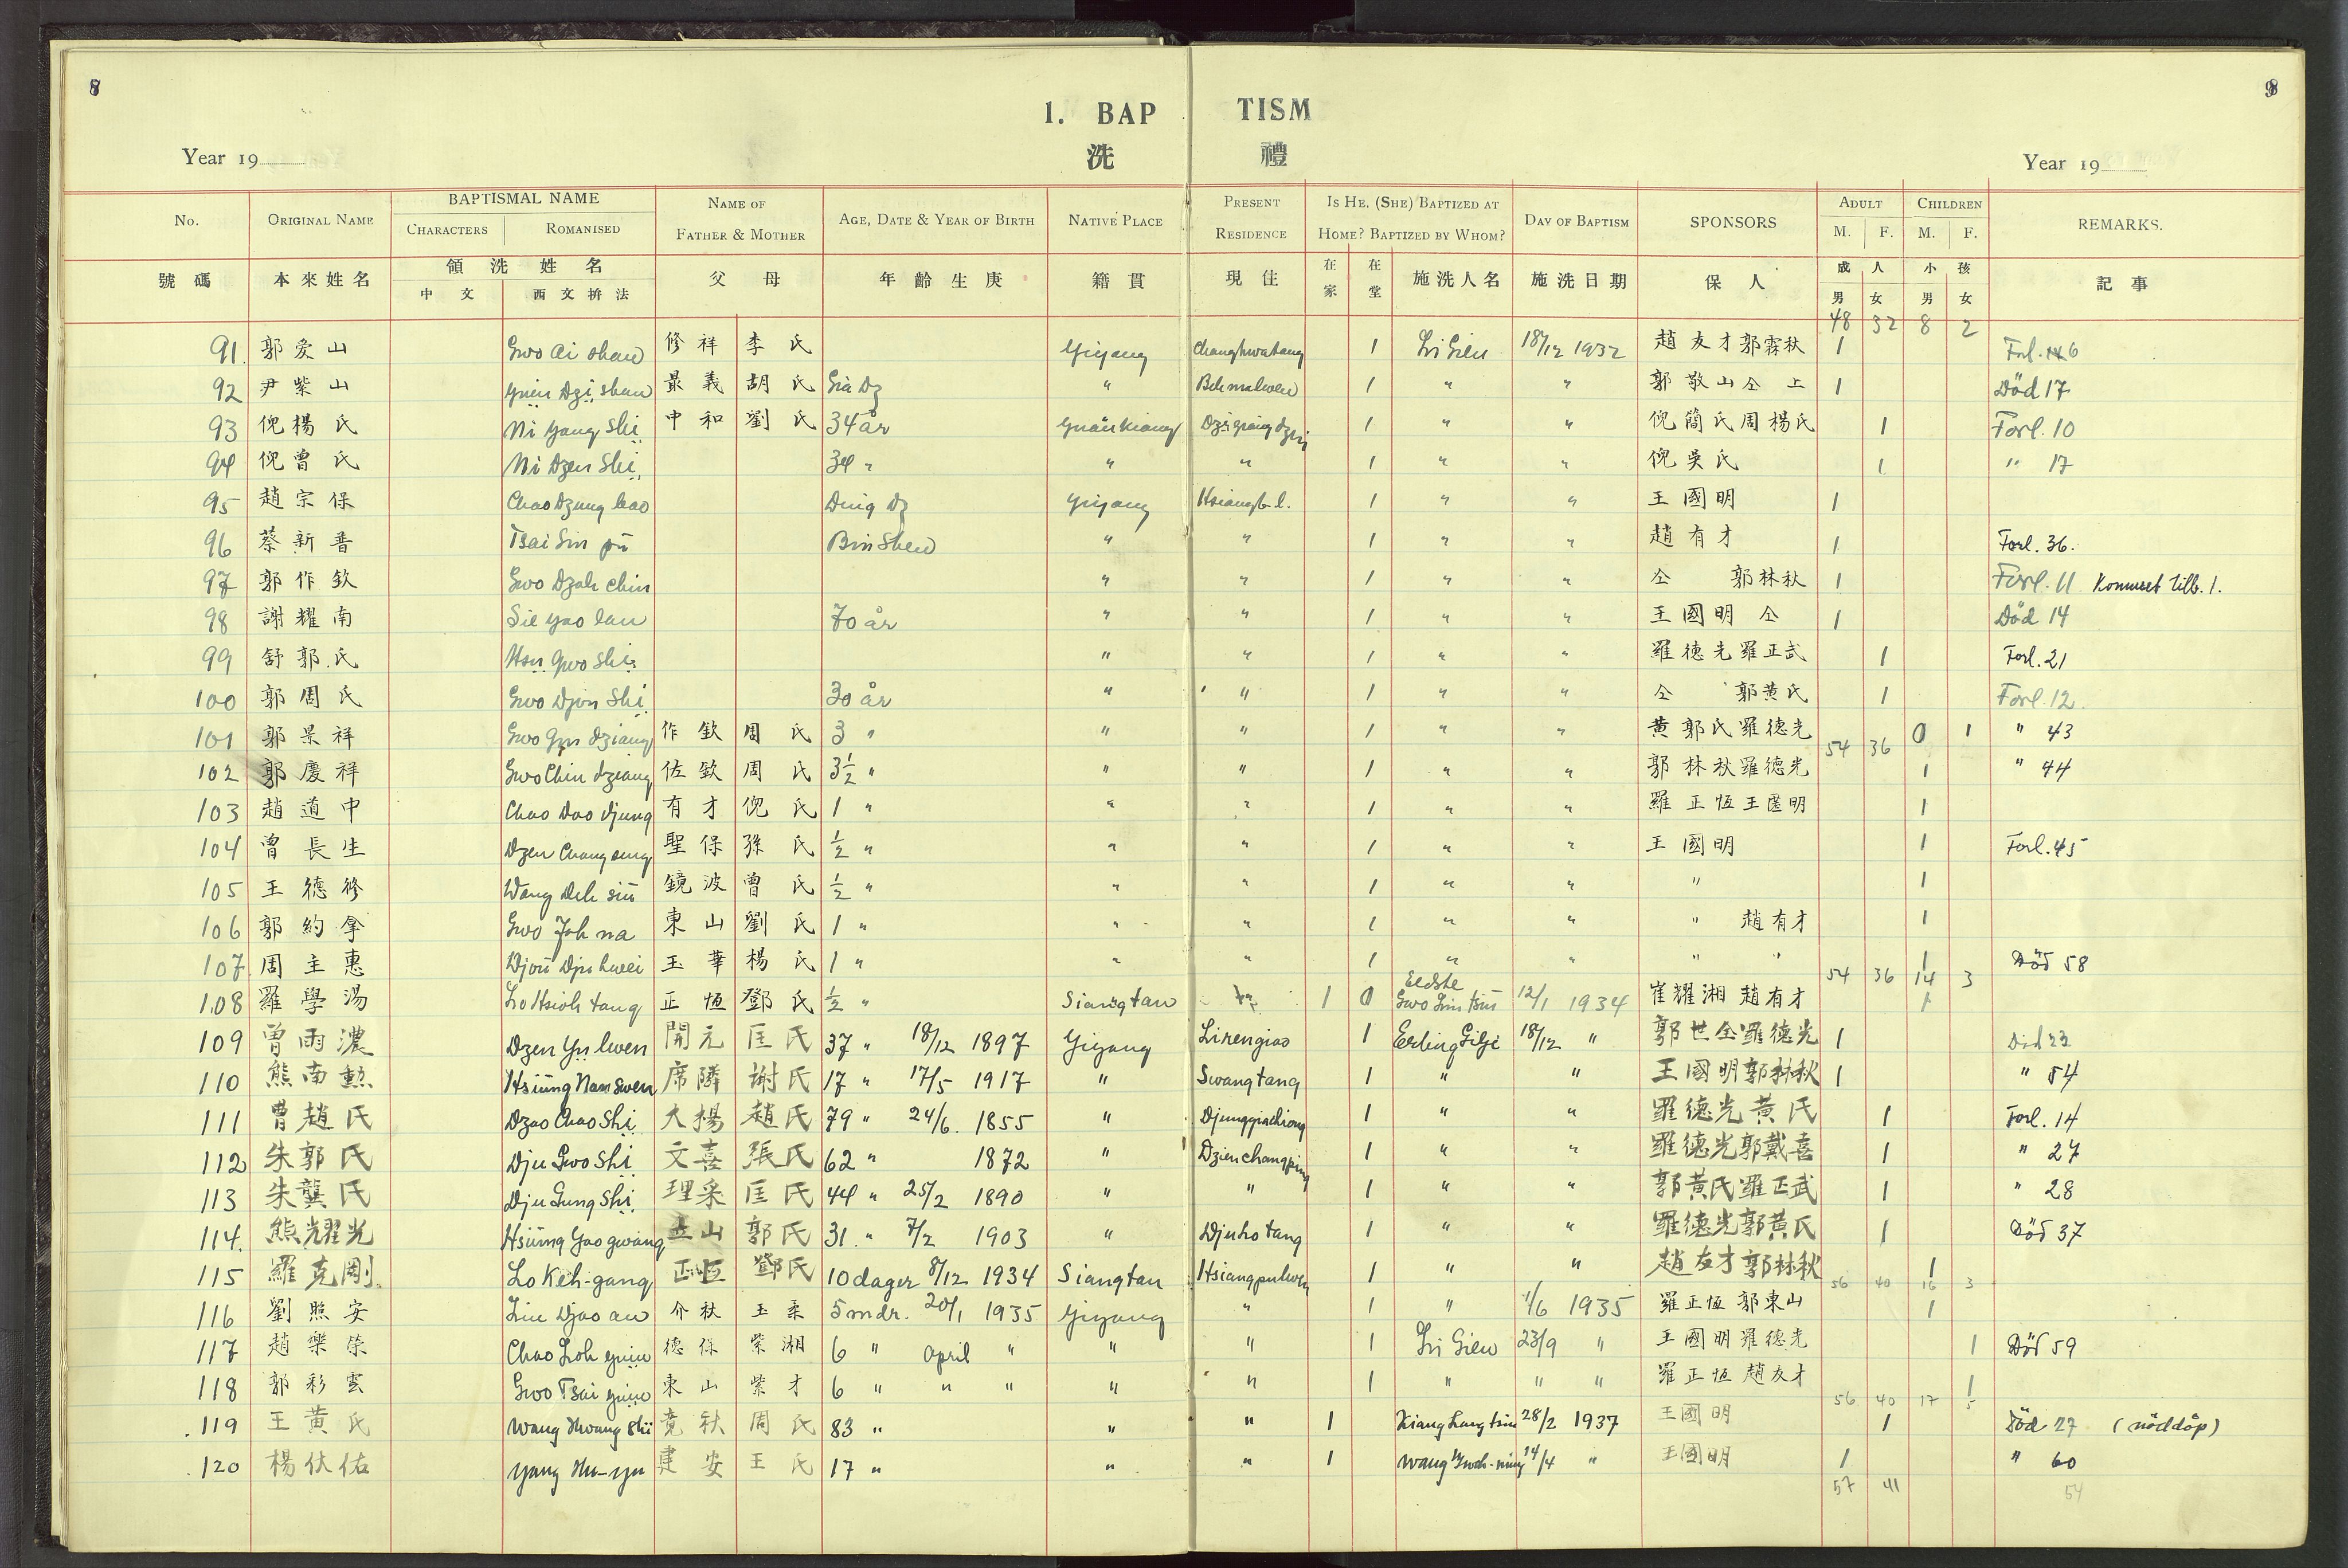 8 9
1. BAPTISM
Year 19 洗 禮 Year 19
No. ORIGINAL NAME BAPTISMAL NAME CHARACTERS ROMANISED NAME OF FATHER & MOTHER AGE, DATE & YEAR OF BIRTH NATIVE PLACE PRESENT RESIDENCE IS HE, (SHE) BAPTIZED AT HOME? BAPTIZED BY WHOM? DAY OF BAPTISM SPONSORS ADULT M. F. CHILDREN M. F. REMARKS.
號碼 本來姓名 領洗姓名 中文 西文拚法 父 母 年齡生庚 籍貫 現住 在家 在堂 施洗人名 施洗日期 保人 成人 男 女 小孩 男 女 記事
48 32 8 2
91. 郭爱山 Gwo Ai shan 修祥 李氏 Yiyang Changhwatang 1 Li Gien 18/12 1932 趙友才郭霖秋 1
92 尹紫山 Yuin Dzi shan 最義 胡氏 Gia Dz " 1 " " 郭敬山仝上 1 Död 17
93 倪楊氏 Ni Yang Shi 中和 劉氏 34 år 1 " " 倪簡氏周楊氏 1 Forl. 10
94 倪曾氏 Ni Dzen Shi 34 " " " 1 " " 倪吳氏 1 " 17
95 趙宗保 Chao Dzung bao Ding Dz Yiyang 1 " " 王國明 1
96 蔡新普 Tsai Sin pu Bin Shen " " 1 " " 趙有才 1 Forl. 36.
97 郭作欽 Gwo Dzoh chin " " 1 " " 仝 郭林秋 1 Forl. 11 Kommet tilb. 1.
98 謝耀南 Sie Yao lan 70 år " " 1 " " 王國明 仝 1 Död 14
99 舒郭氏 Hsu Gwo Shi " " 1 " " 羅德光羅正武 1 Forl. 21
100 郭周氏 Gwo Djou Shi 30 år " " 1 " " 仝 郭黄氏 1 Forl. 12
101 郭景祥 Gwo Gin dziang 作欽 周氏 3 " " " 1 " " 黄郭氏羅德光 54 36 0 1 " 43
102 郭慶祥 Gwo Chin dziang 佐欽 周氏 3½ " " " 1 " " 郭林秋羅德光 1 " 44
103 趙道中 Chao Dao djung 有才 倪氏 1 " " " 1 " " 羅正恆王國明 1
104 曾長生 Dzen Chang seng 聖保 孫氏 ½ " " " 1 " " 王國明 1 Forl. 45
105 王德修 Wang Deh siu 鏡波 曾氏 ½ " " " 1 " " " 1
106 郭約拿 Gwo Joh na 東山 劉氏 1 " " " 1 " " " 趙有才 1
107 周主惠 Djou Dju hwei 玉華 楊氏 1 " " " 1 " " " " 1 Död 58
54 36 14 3
108 羅學湯 Lo Hsioh tang 正恆 鄧氏 ½ " Siangtan 1 0 Eldste Gwo Lin tsiu 12/1 1934 崔耀湘 趙有才 1
109 曾雨濃 Dzen Yu lwen 開元 匡氏 37 " 18/12 1897 Yiyang Lirengiao 1 Erling Gilje 18/12 " 郭世全羅德光 1 Död 22
110 熊南勲 Hsiung Nan swen 席隣 謝氏 17 " 17/5 1917 " Swangtang 1 " " 王國明郭林秋 1 " 54
111 曹趙氏 Dzao Chao Shi 大楊 趙氏 79 " 24/6. 1855 " 1 " " 羅德光黄氏 1 Forl. 14
112 朱郭氏 Dju Gwo Shi 文喜 張氏 62 " 1872 " Dzienchangping 1 " " 羅德光郭戴喜 1 " 27
113 朱龔氏 Dju Gung Shi 理采 匡氏 44 " 25/2 1890 " " 1 " " 郭黄氏羅正武 1 " 28
114. 熊耀光 Hsiung Yao gwang 立山 郭氏 31. " 7/2 1903 " Djuhotang 1 " " 羅德光郭黄氏 1 Död 37
115 羅克剛 Lo Keh-gang 正恆 鄧氏 10 dager 8/12 1934 Siangtan Hsiangpulwen 1 " " 趙友才郭林秋 1
56 40 16 3
116 劉照安 Liu Djao an 介秋 玉柔 5 mdr. 20/1 1935 Yiyang " 1 " 1/6 1935 羅正恆 郭東山 1
117 趙樂榮 Chao Loh yuin 德保 紫湘 6 " April " " " 1 Li Gien 23/9 " 王國明羅德光 1 Död 59
118 郭彩雲 Gwo Tsai yuin 東山 紫才 6 " " " " " 1 " " " 羅正恆 趙友才 1
56 40 17 5
119 王黄氏 Wang Hwang Shi 竟秋 周氏 83 " " " 1 Xiang Lang tsin 28/2 1937 王國明 1 Död 27 (nöddåp)
120 楊伏佑 Yang Hu-yu 建安 王氏 17 " " " 1 Wang Gwoh-ming 14/4 " 王國明 1 " 60
57 41 54